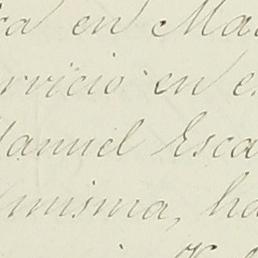 en Ma
rvicio en e
Manuel Esca
misma, ha